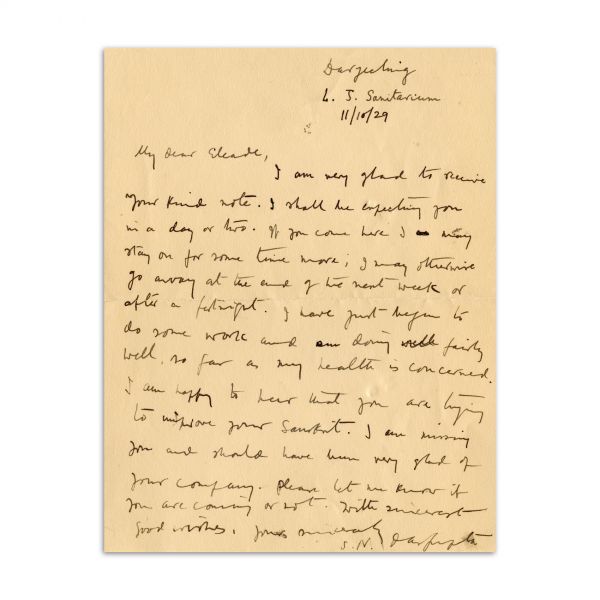 Darjeeling
L. J. Sanitarium
11/10/29
My dear Eleade,
I am very glad to receive
your kind note. I shall be expecting you
in a day or two. If you come here I may
stay on for some time more; I may otherwise
go away at the end of the next week or
after a fotnight. I have just begun to
do some work and am doing fairly
well, so far as my health is concerned.
I am happy to hear that you are trying
to improve your Sanskrit. I am missing
you and should have been very glad of
your company. Please let me know if
you are coming or not. With sincerest
good wishes. Yours sincerely
S. N. Dasgupta